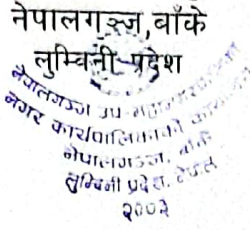 नेपालगञ्ज,बाँके
लुम्बिनी प्रदेश
नेपालगञ्ज उप-महानगरपालिका
नगर कार्यपालिकाको कार्यालय
नेपालगञ्ज, बाँके
लुम्बिनी प्रदेश, नेपाल
२००३